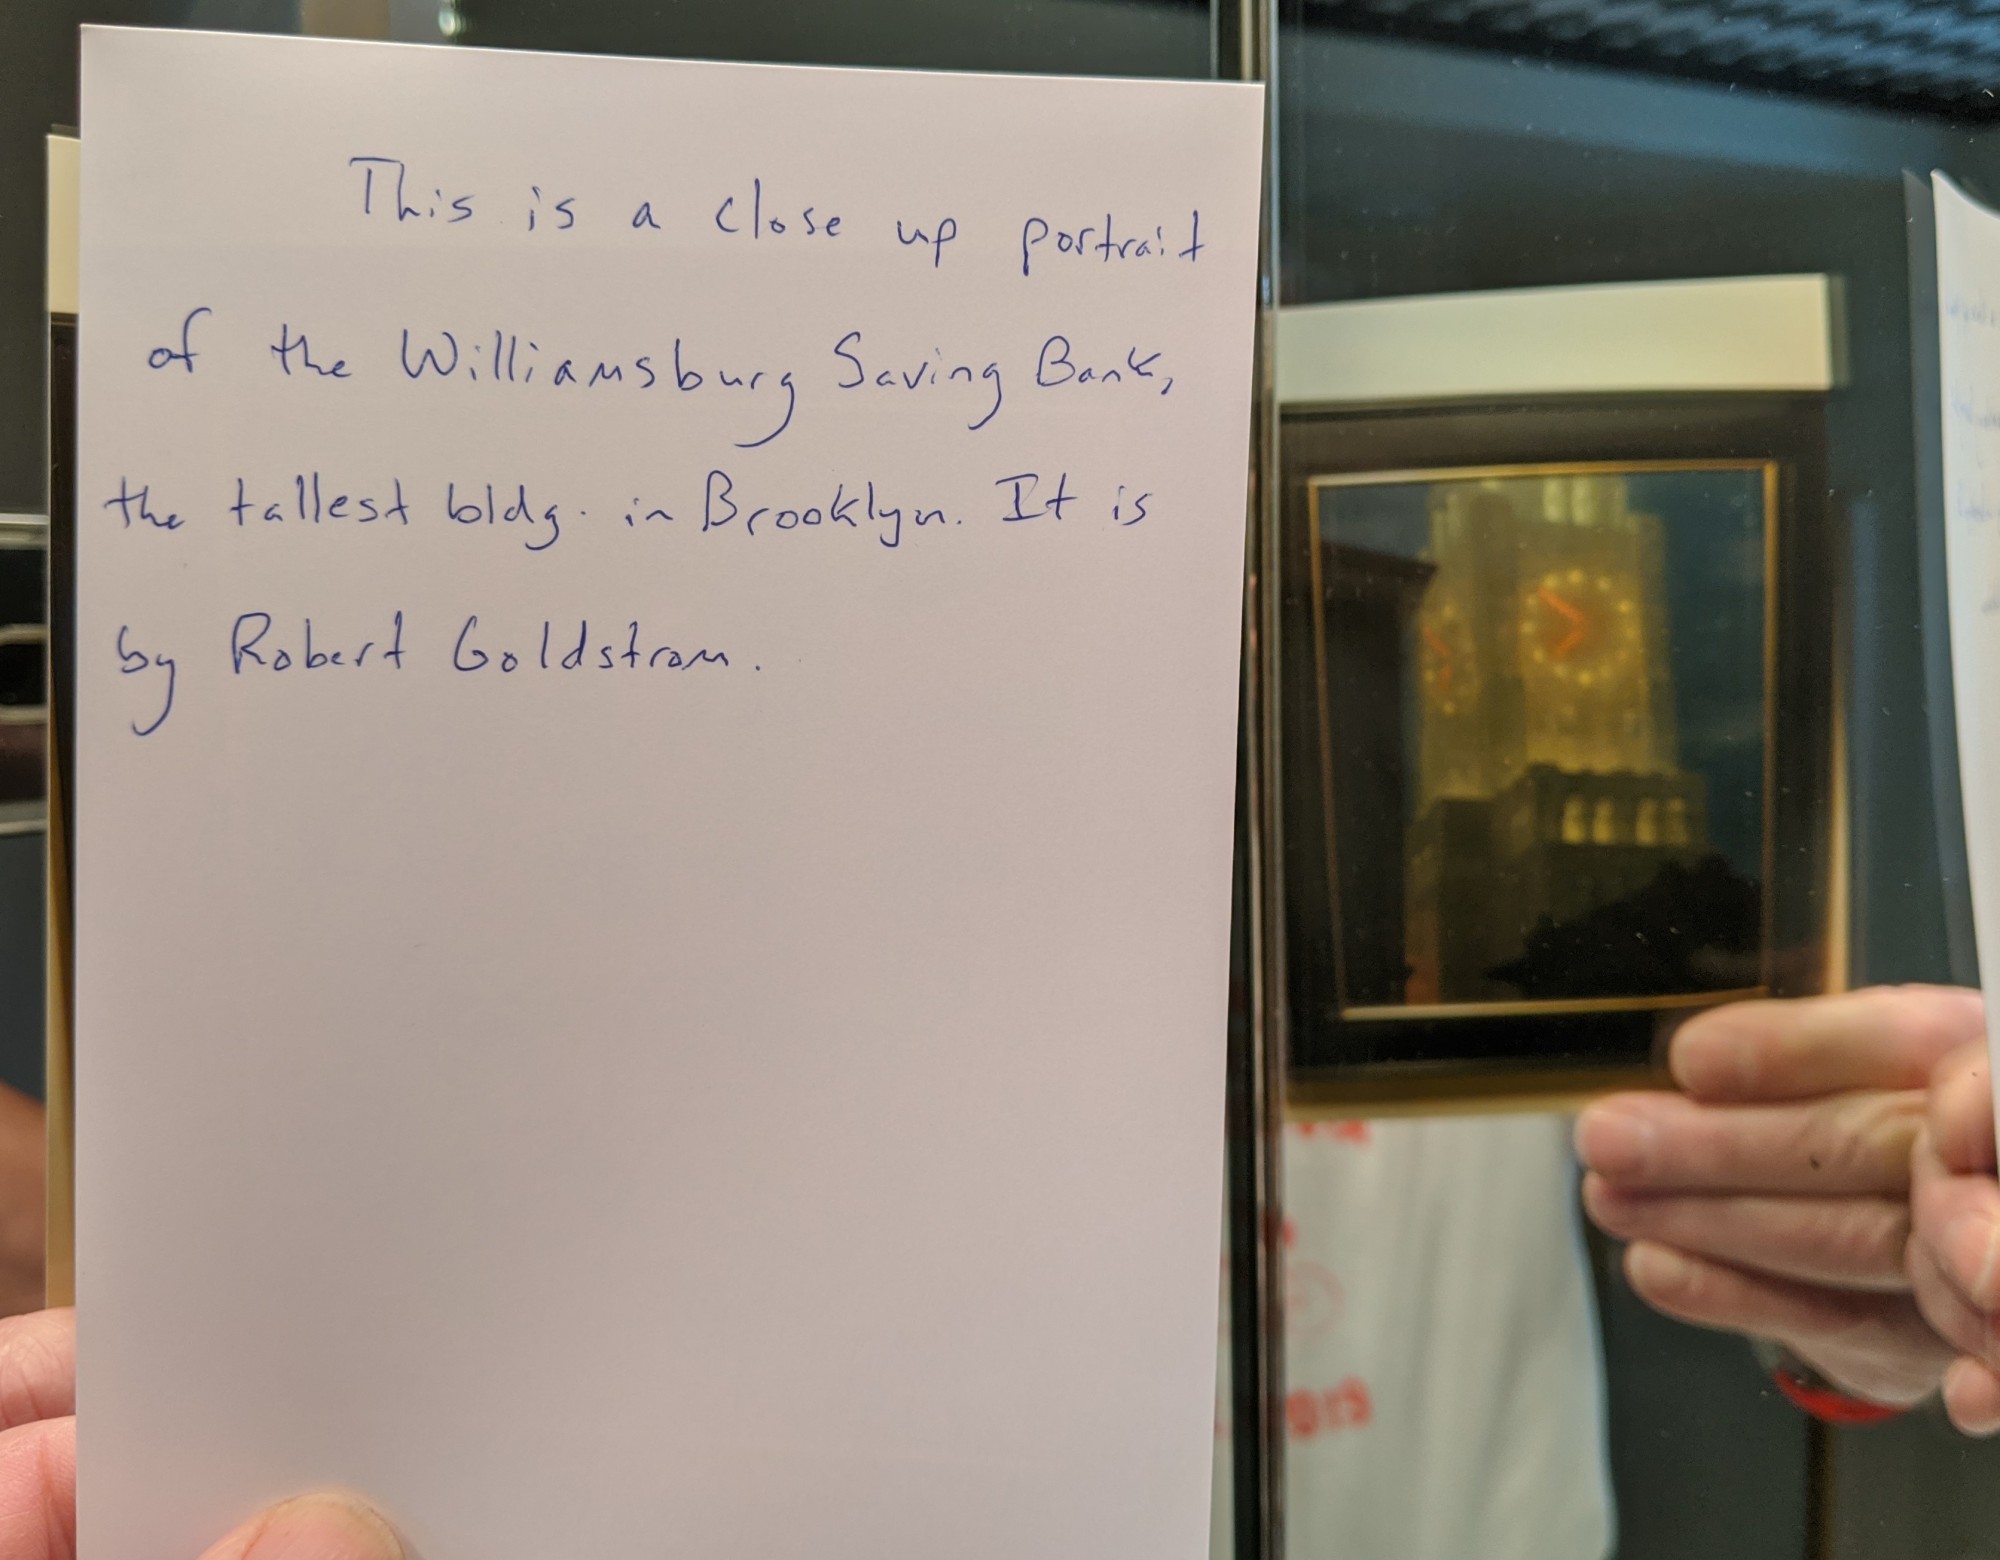 This is a close up portrait
of the Williamsburg Saving Bank,
the tallest bldg. in Brooklyn. It is
by Robert Goldstrom.